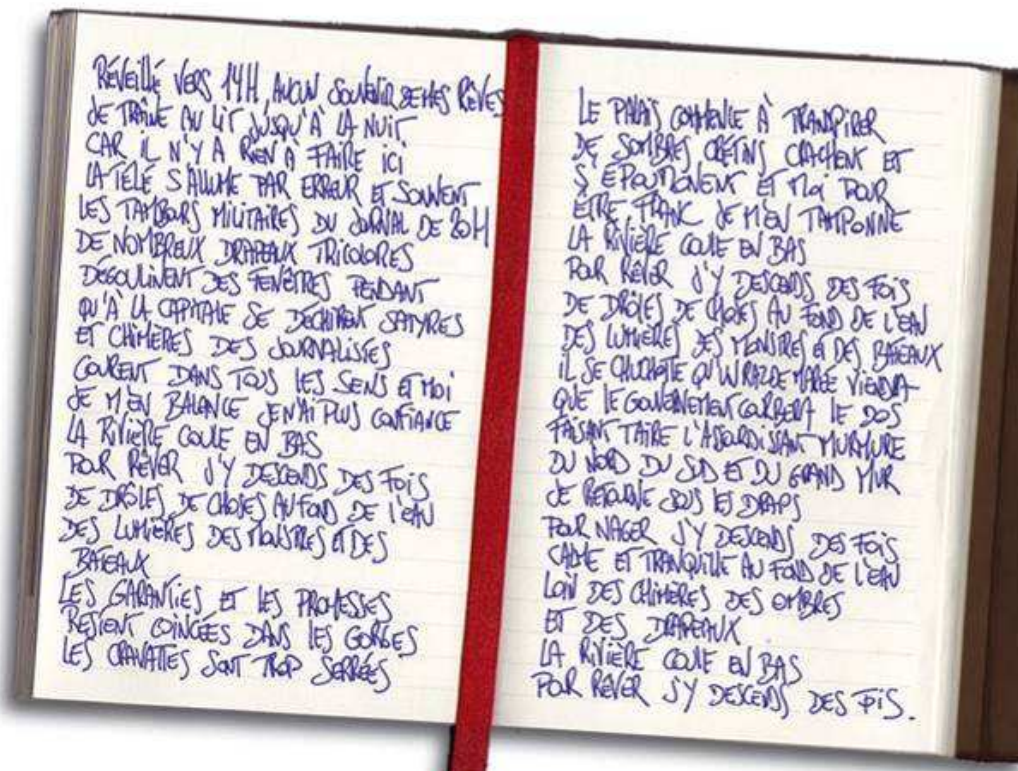 RÉVEILLÉ VERS 14H, AUCUN SOUVENIR DE MES RÊVES
JE TRAÎNE AU LIT JUSQU'À LA NUIT
CAR IL N'Y A RIEN À FAIRE ICI
LA TÉLÉ S'ALLUME PAR ERREUR ET SOUVENT
LES TAMBOURS MILITAIRES DU JOURNAL DE 20H
DE NOMBREUX DRAPEAUX TRICOLORES
DÉGOULINENT DES FENÊTRES PENDANT
QU'À LA CAPITALE SE DÉCHIRENT SATYRES
ET CHIMÈRES DES JOURNALISTES
COURENT DANS TOUS LES SENS ET MOI
JE M'EN BALANCE JE N'AI PLUS CONFIANCE
LA RIVIÈRE COULE EN BAS
POUR RÊVER J'Y DESCENDS DES FOIS
DE DRÔLES DE CHOSES AU FOND DE L'EAU
DES LUMIÈRES DES MONSTRES ET DES
BATEAUX
LES GARANTIES ET LES PROMESSES
RESTENT COINCÉES DANS LES GORGES
LES CRAVATTES SONT TROP SERRÉES
LE PALAIS COMMENCE À TRANSPIRER
DE SOMBRES CRÉTINS CRACHENT ET
S'ÉPOUMONENT ET MOI POUR
ÊTRE FRANC JE M'EN TAMPONNE
LA RIVIÈRE COULE EN BAS
POUR RÊVER J'Y DESCENDS DES FOIS
DE DRÔLES DE CHOSES AU FOND DE L'EAU
DES LUMIÈRES DES MONSTRES ET DES BATEAUX
IL SE CHUCHOTE QU'UN RAZ DE MARÉE VIENDRA
QUE LE GOUVERNEMENT COURBERA LE DOS
FAISANT TAIRE L'ASSOURDISSANT MURMURE
DU NORD DU SUD ET DU GRAND MUR
JE RETOURNE SOUS LES DRAPS
POUR NAGER J'Y DESCENDS DES FOIS
CALME ET TRANQUILLE AU FOND DE L'EAU
LOIN DES CHIMÈRES DES OMBRES
ET DES DRAPEAUX
LA RIVIÈRE COULE EN BAS
POUR RÊVER J'Y DESCENDS DES FOIS.